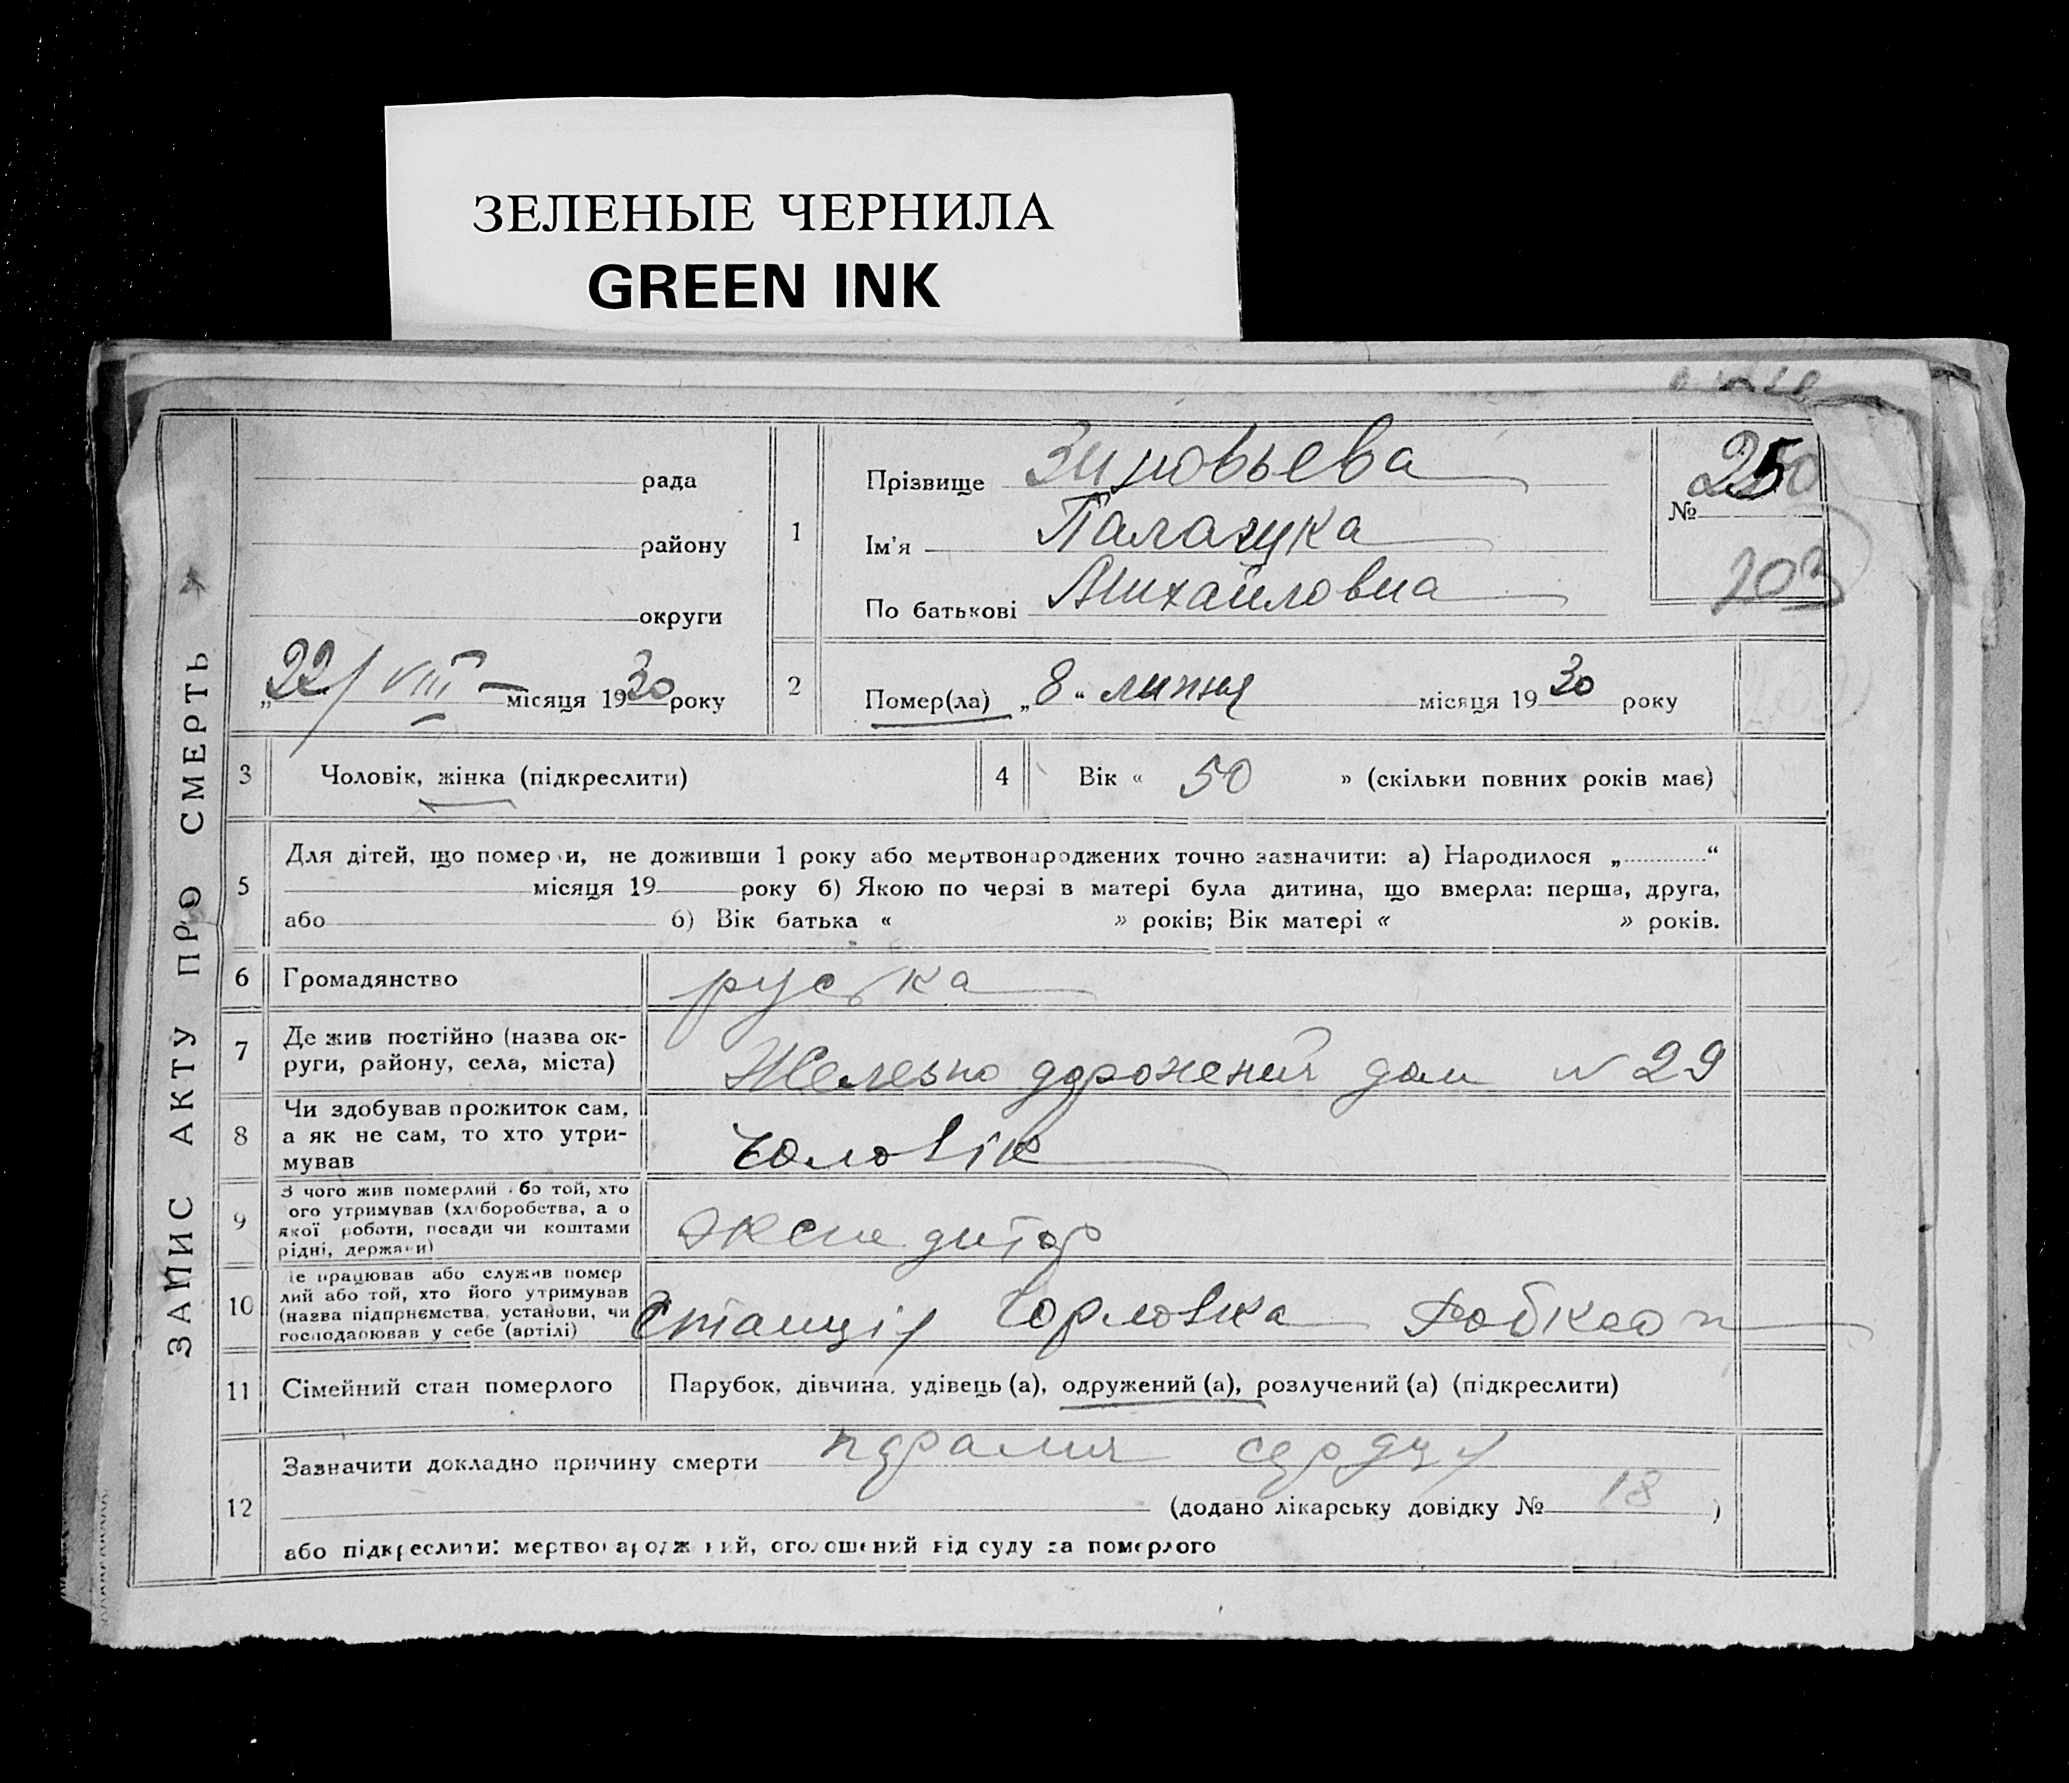 ЗЕЛЕНЫЕ ЧЕРНИЛА
GREEN INK
ЗАПИС АКТУ ПРО СМЕРТЬ
рада
району
округи
„22/VIII – місяця 1930 року
1
Прізвище Зиновьева
Ім'я
По батькові Михайловна
№ 250
203
2
Помер(ла) „8“ липня місяця 1930 року
3
Чоловік, жінка (підкреслити)
4
Вік « 50 » (скільки повних років має)
5
Для дітей, що померли, не доживши 1 року або мертвонароджених точно зазначити: а) Народилося „ “
місяця 19 року б) Якою по черзі в матері була дитина, що вмерла: перша, друга,
або б) Вік батька « » років; Вік матері « » років.
6
Громадянство
руська
7
Де жив постійно (назва ок-
руги, району, села, міста)
Железно дорожений дом № 29
8
Чи здобував прожиток сам,
а як не сам, то хто утри-
мував
чоловік
9
З чого жив померлий або той, хто
ого утримував (хліборобства, а о
якої роботи, посади чи коштами
рідні, держави)
Экспедитор
10
Де працював або служив помер
лий або той, хто його утримував
(назва підприємства, установи, чи
господарював у себе (артілі)
Станція Горловка Робкооп
11
Сімейний стан померлого
Парубок, дівчина, удівець (а), одружений (а), розлучений (а) (підкреслити)
12
Зазначити докладно причину смерти
(додано лікарську довідку № 18 )
або підкреслити: мертвонароджений, оголошений від суду за померлого